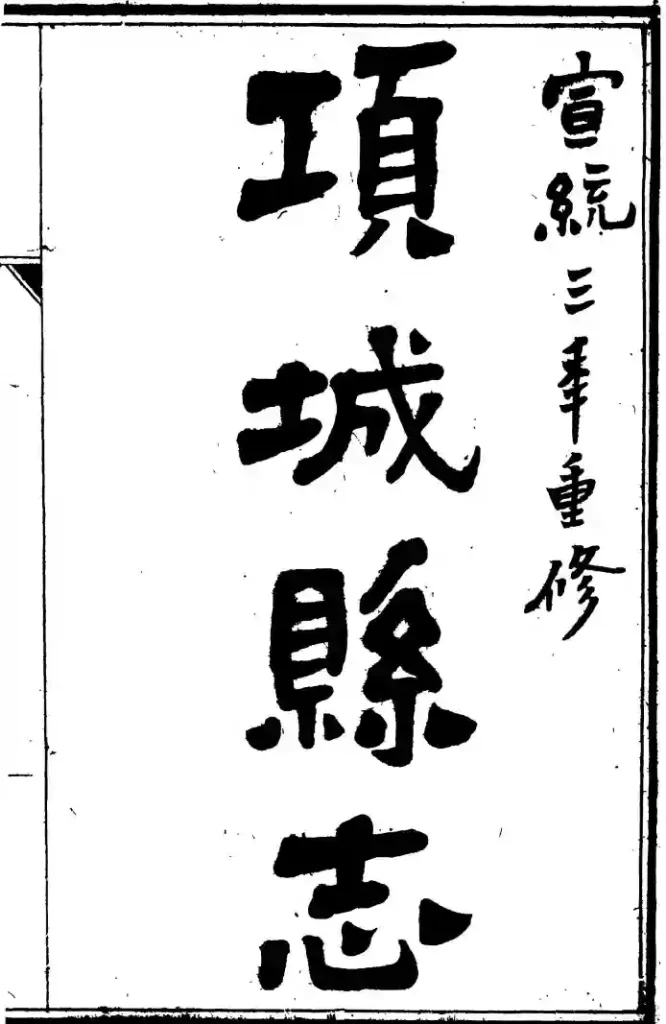 宣統三年重修
項城縣志